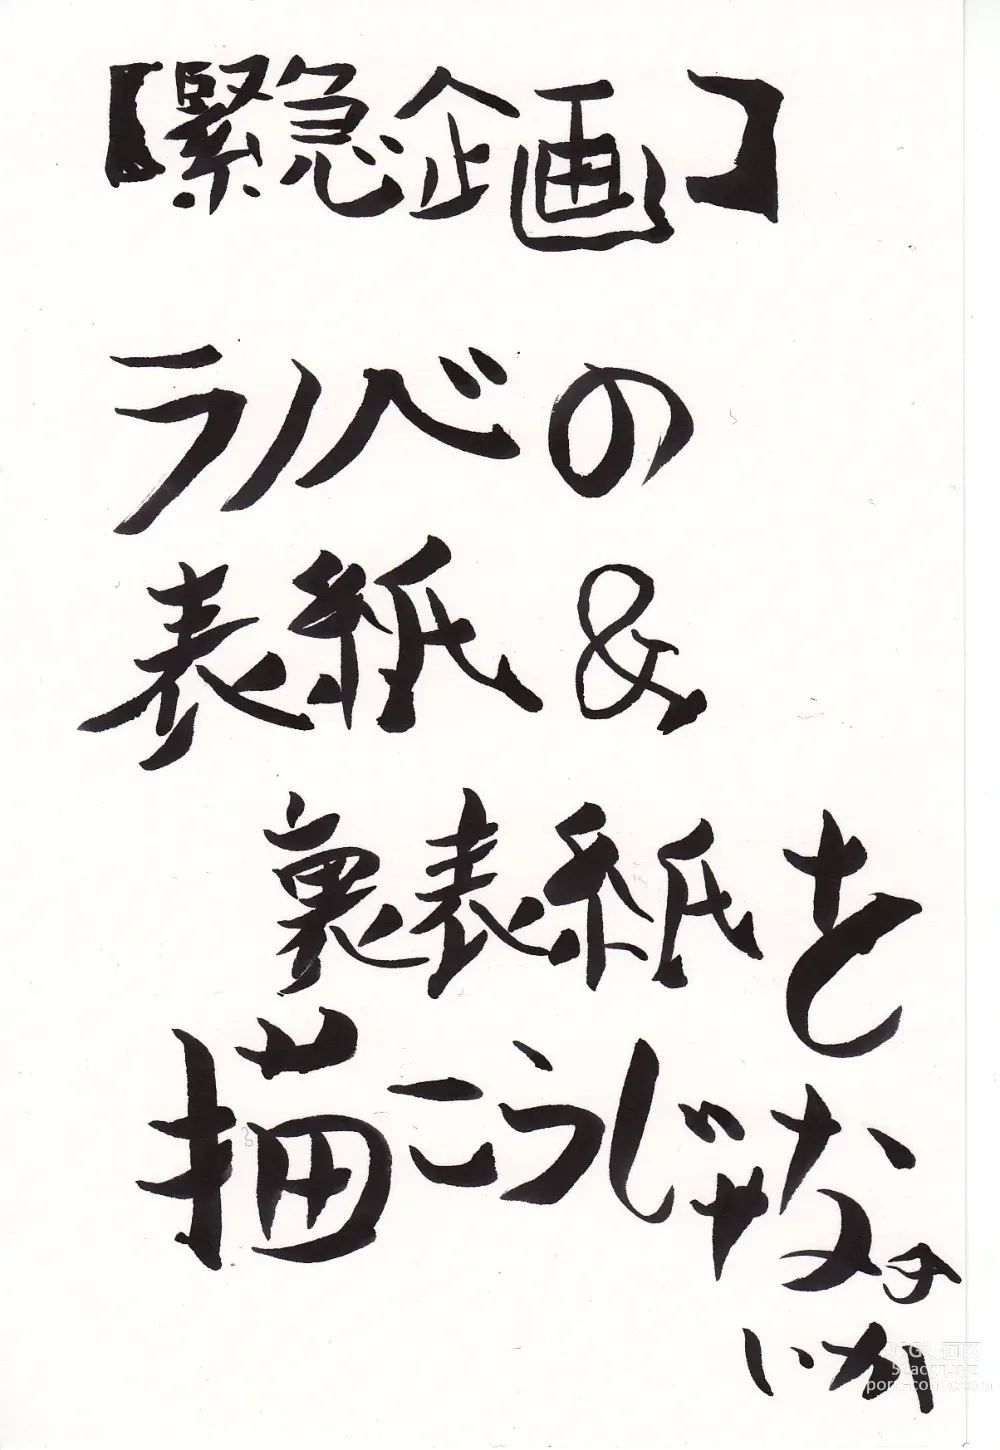 【緊急企画】
ラノベの
表紙&
裏表紙を
描こうじゃな
いか